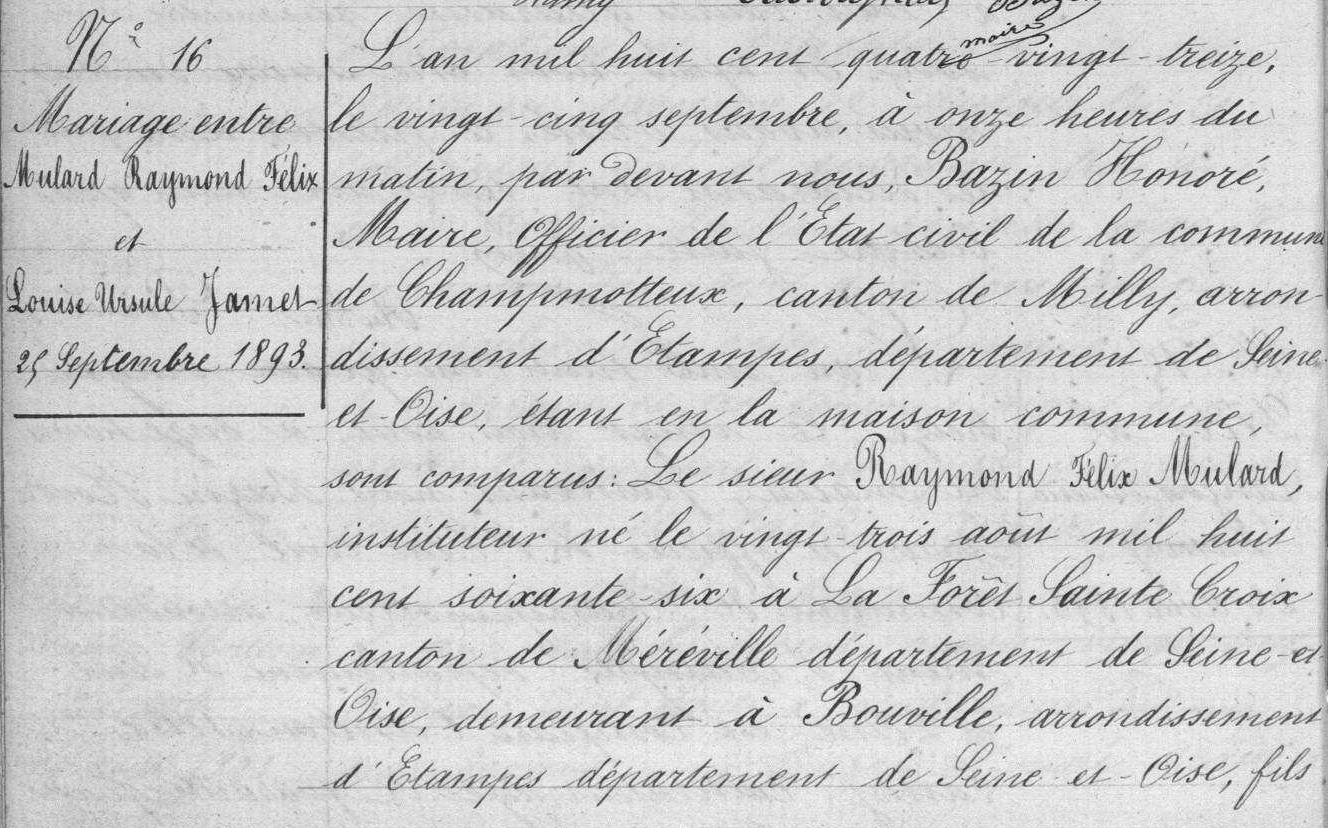 maire
N° 16
Mariage entre
Mulard Raymond Félix
et
Louise Ursule Jamet
25 Septembre 1893.
L'an mil huit cent quatre-vingt-treize,
le vingt-cinq septembre, à onze heures du
matin, par devant nous, Bazin Honoré,
Maire, Officier de l'Etat civil de la commune
de Champmotteux, canton de Milly, arron-
dissement d'Etampes, département de Seine-
et-Oise, étant en la maison commune,
sont comparus: Le sieur Raymond Félix Mulard,
instituteur né le vingt-trois août mil huit
cent soixante-six à La Forêt Sainte Croix
canton de Méréville département de Seine-et-
Oise, demeurant à Bouville, arrondissement
d'Etampes département de Seine-et-Oise, fils